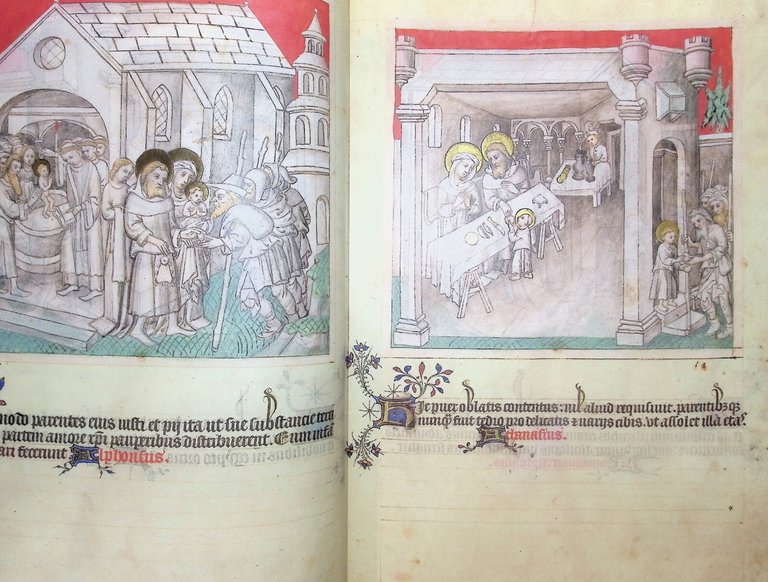 modo parentes eius iusti et pij ita ut sue substancie terci
partem amore xpi pauperibus distribuerent. Eum
ari fecerunt Alphonsus.
puer oblatis contentus: nil aliud requisiuit. parentibꝫqꝫ
nunqꝫ fuit tedio pro delicatis ⁊ uarijs cibis. ut assolet illa etas.
Athanasius.